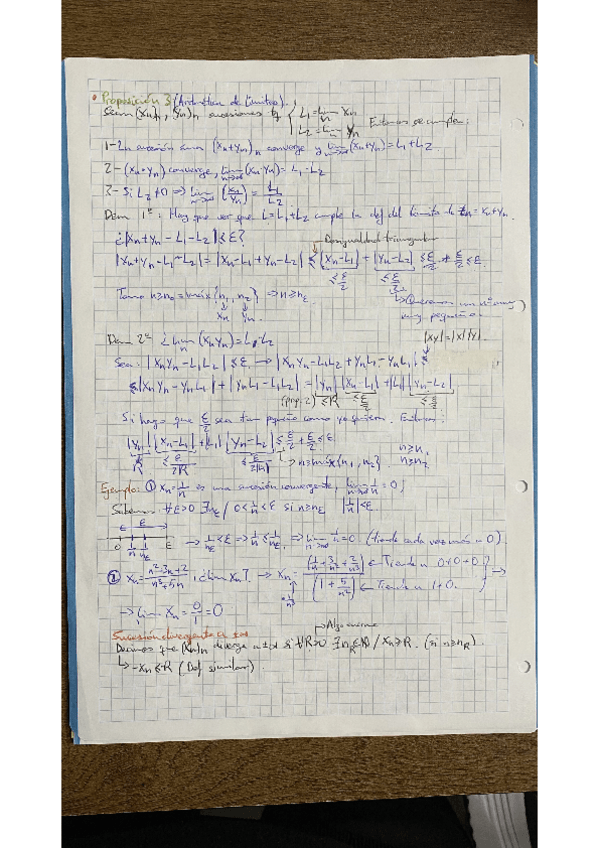 • Proposición 3 (Aritmética de límites).
Sean (xn)n, (yn)n sucesiones tq { L1 = lim n xn
L2 = lim n yn Entonces se cumple:
1- La sucesión suma (xn+yn)n converge y lim n→∞ (xn+yn) = L1+L2
2- (xn·yn) converge, lim n→∞ (xn·yn) = L1·L2
3- Si L2≠0 ⇒ lim n→∞ (xn/yn) = L1/L2
Dem 1º: Hay que ver que L=L1+L2 cumple la def del límite de = xn+yn.
¿|xn+yn-L1-L2| ≤ ε? Desigualdad triangular
|xn+yn-L1-L2| = |xn-L1+yn-L2| ≤ |xn-L1| + |yn-L2| ≤ ε/2 + ε/2 ≤ ε.
≤ ε/2 ≤ ε/2
Tomo n≥n0=máx{n1, n2} ⇒ n≥nε Queremos un nº muy
xn yn muy pequeño.
Dem 2º ¿lim n (xn yn) = L1·L2 |xy|=|x||y|
Sea: |xn yn - L1L2| ≤ ε → |xn yn - L1L2 + yn L1 - yn L1| ≤
≤ |xn yn - yn L1| + |yn L1 - L1L2| = |yn| |xn-L1| + |L1| |yn-L2|
(prop. 2) ≤R ≤ ε/2 ≤ ε/2
Si hago que ε/2 sea tan pequeño como yo quiera. Entonces:
|yn| |xn-L1| + |L1| |yn-L2| ≤ ε/2 + ε/2 ≤ ε n≥n1
R ≤ ε/2R → n≥máx{n1, n2} n≥n2
Ejemplos: ① xn = 1/n es una sucesión convergente, lim n→∞ 1/n = 0;
Sabemos: ∀ε>0 ∃nε / 0<1/n<ε si n≥nε |1/n|<ε
→ 1/nε < ε ⇒ 1/n ≤ 1/nε ⇒ lim n→∞ 1/n = 0. (tiende cada vez más a 0).
② xn = , ¿lim xn? → xn = (1/n + 3/n² + 2/n³) ← Tiende a 0+0+0
(1 + 5/n²) ← Tiende a 1+0. →
→ lim xn = 0/1 = 0
Sucesión divergente a ±∞ → Algo enorme
Decimos que (xn)n diverge a +∞ si ∀R>0 ∃nR∈ℕ / xn≥R. (si n≥nR).
↳ -xn≤-R (Def similar).